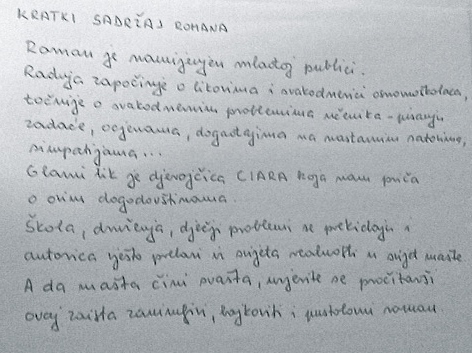 KRATKI SADRŽAJ ROMANA
Roman je namijenjen mlađoj publici.
Radnja započinje o likovima i svakodnevici osnovnoškolaca,
točnije o svakodnevnim problemima učenika - pisanju
zadaće, ocjenama, događajima na nastavnim satovima,
simpatijama...
Glavni lik je djevojčica CIARA koja nam priča
o ovim dogodovštinama.
Škola, druženja, dječji problemi se prekidaju i
autorica vješto prelazi iz svijeta realnosti u svijet mašte.
A da mašta čini svašta, uvjerite se pročitavši
ovaj zaista zanimljivi, bajkoviti i pustolovni roman.